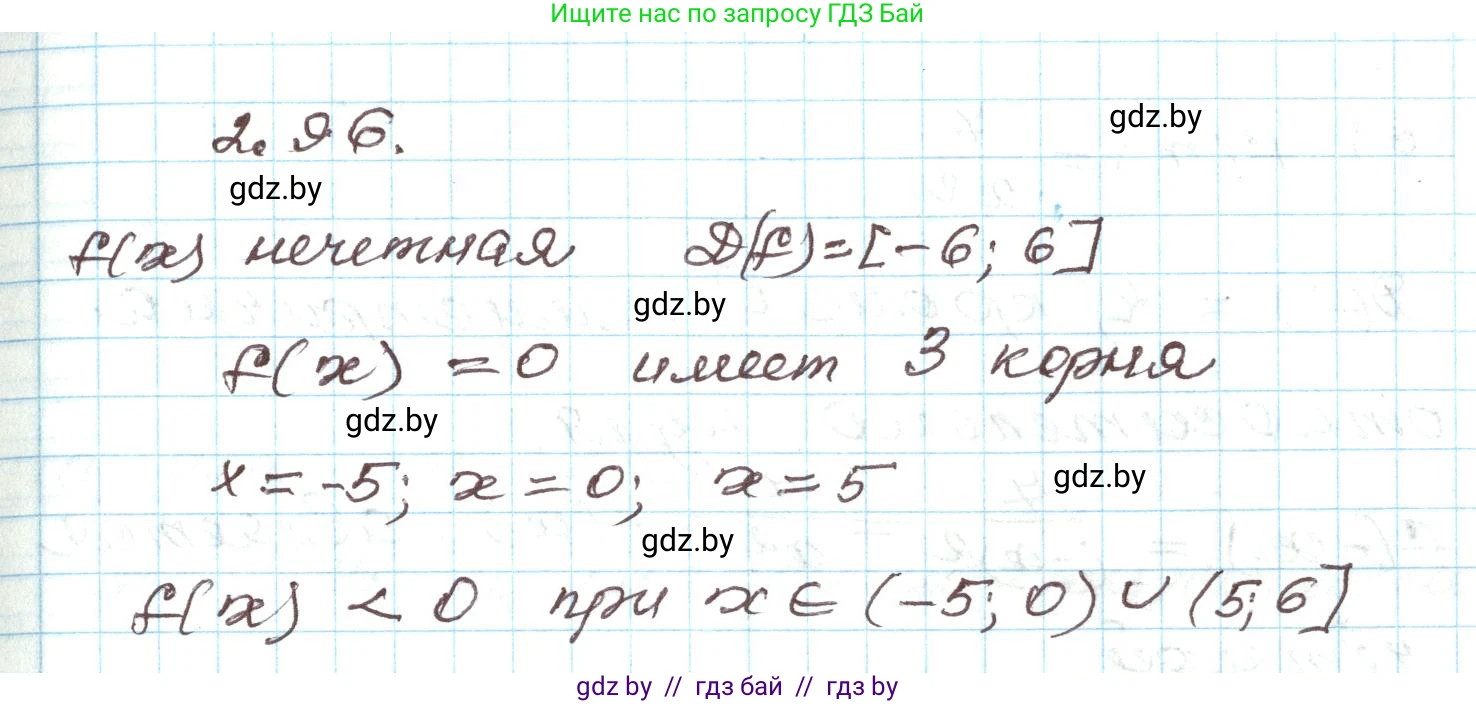 Ищите нас по запросу ГДЗ Бай
gdz.by
2.96.
gdz.by
f(x) нечетная D(f)=[-6; 6]
gdz.by
f(x) = 0 имеет 3 корня
gdz.by
x = -5; x = 0; x = 5
gdz.by
gdz.by
f(x) < 0 при x ∈ (-5; 0) ∪ (5; 6]
gdz by // гдз бай // гдз by